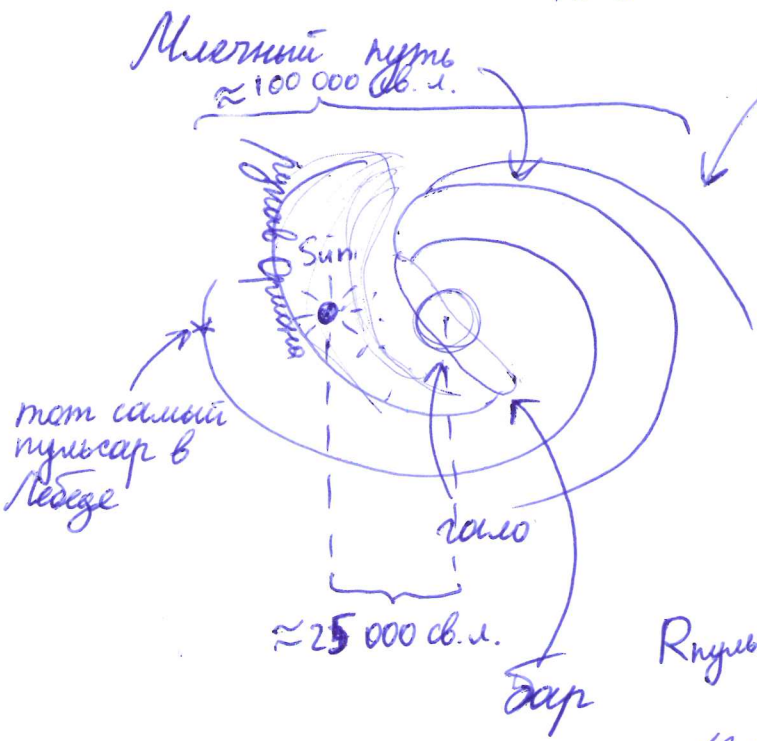 Млечный путь
≈100 000 св. л.
рукав Ориона
Sun
тот самый
пульсар в
Лебеде
гало
≈25 000 св.л.
Rпуль
бар